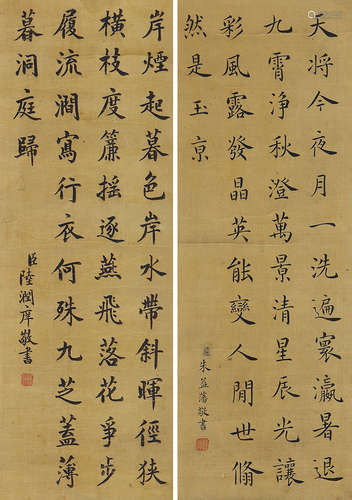 天將今夜月一洗遍寰瀛暑退
九霄淨秋澄萬景清星辰光讓
彩風露發晶英能變人閒世翛
然是玉京
臣朱益藩敬書
岸煙起暮色岸水帶斜暉徑狹
橫枝度簾搖逐燕飛落花爭步
履流澗寫行衣何殊九芝蓋薄
暮洞庭歸
臣陸潤庠敬書